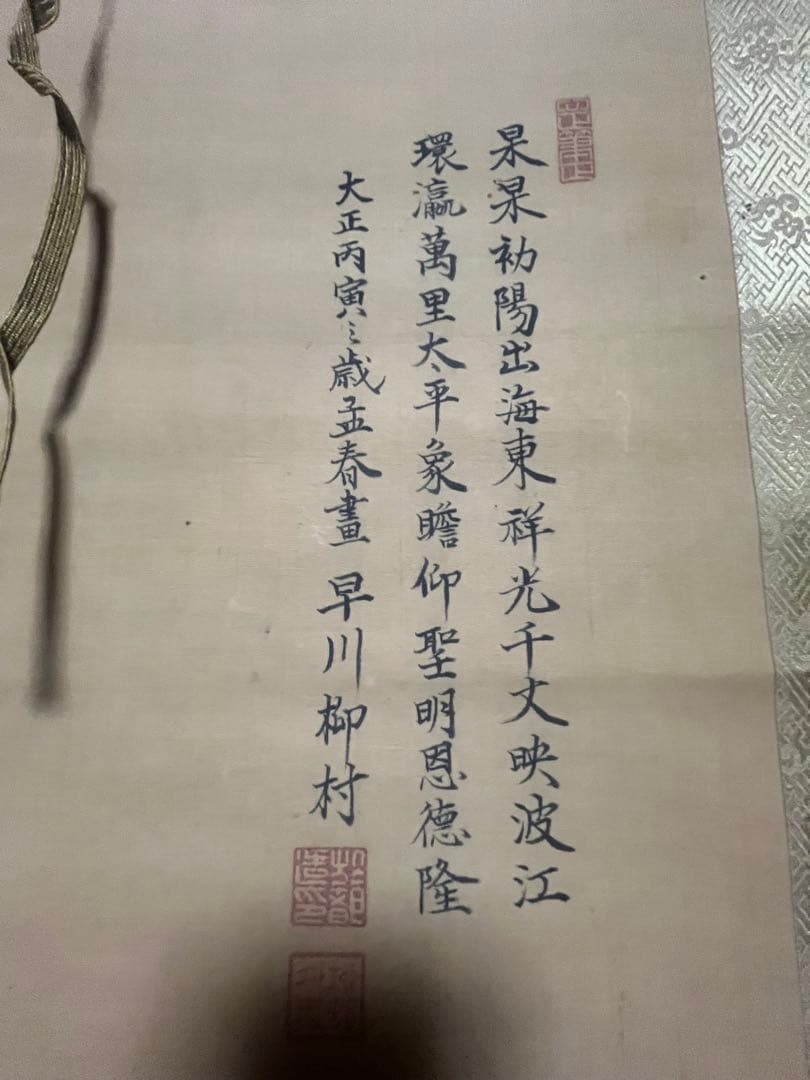 杲杲初陽出海東祥光千丈映波江
環瀛萬里太平象瞻仰聖明恩德隆
大正丙寅之歳孟春畫 早川柳村